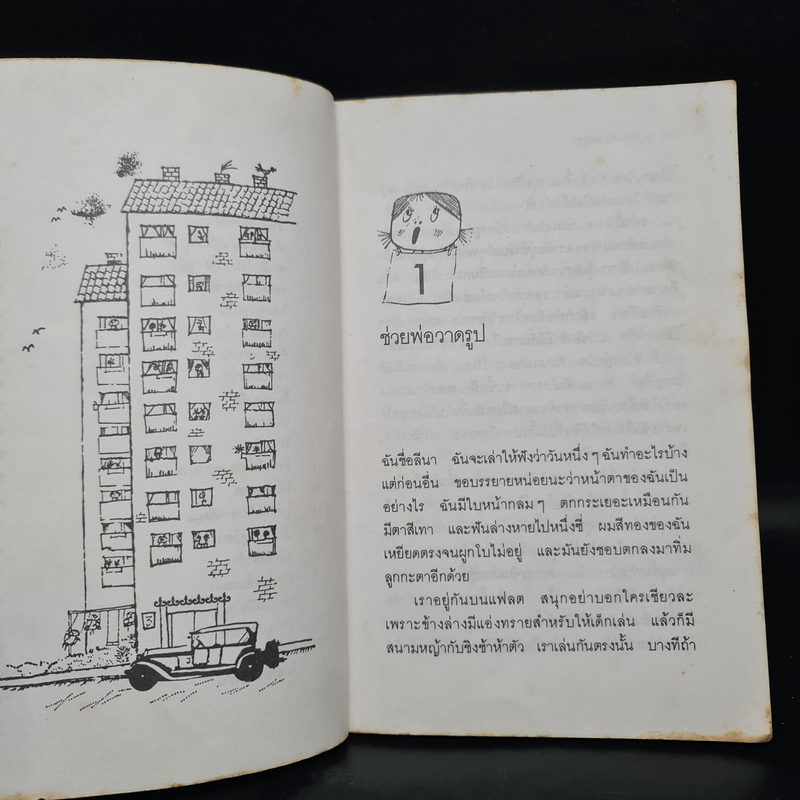 1
ช่วยพ่อวาดรูป
ฉันชื่อลีนา ฉันจะเล่าให้ฟังว่าวันหนึ่ง ๆ ฉันทำอะไรบ้าง
แต่ก่อนอื่น ขอบรรยายหน่อยนะว่าหน้าตาของฉันเป็น
อย่างไร ฉันมีใบหน้ากลม ๆ ตกกระเยอะเหมือนกัน
มีตาสีเทา และฟันล่างหายไปหนึ่งซี่ ผมสีทองของฉัน
เหยียดตรงจนผูกโบไม่อยู่ และมันยังชอบตกลงมาทิ่ม
ลูกกะตาอีกด้วย
เราอยู่กันบนแฟลต สนุกอย่าบอกใครเชียวละ
เพราะข้างล่างมีแอ่งทรายสำหรับให้เด็กเล่น แล้วก็มี
สนามหญ้ากับชิงช้าห้าตัว เราเล่นกันตรงนั้น บางทีถ้า